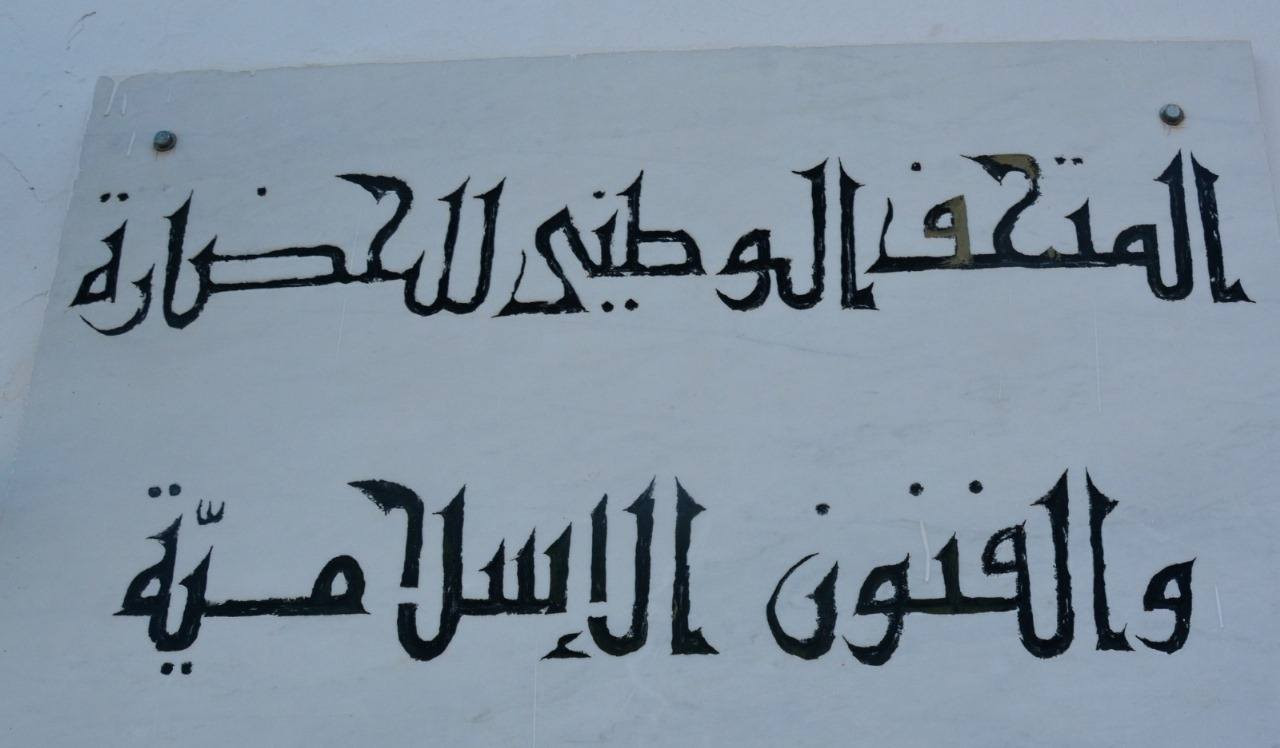 المتحف الوطني للحضارة
والفنون الإسلاميّة